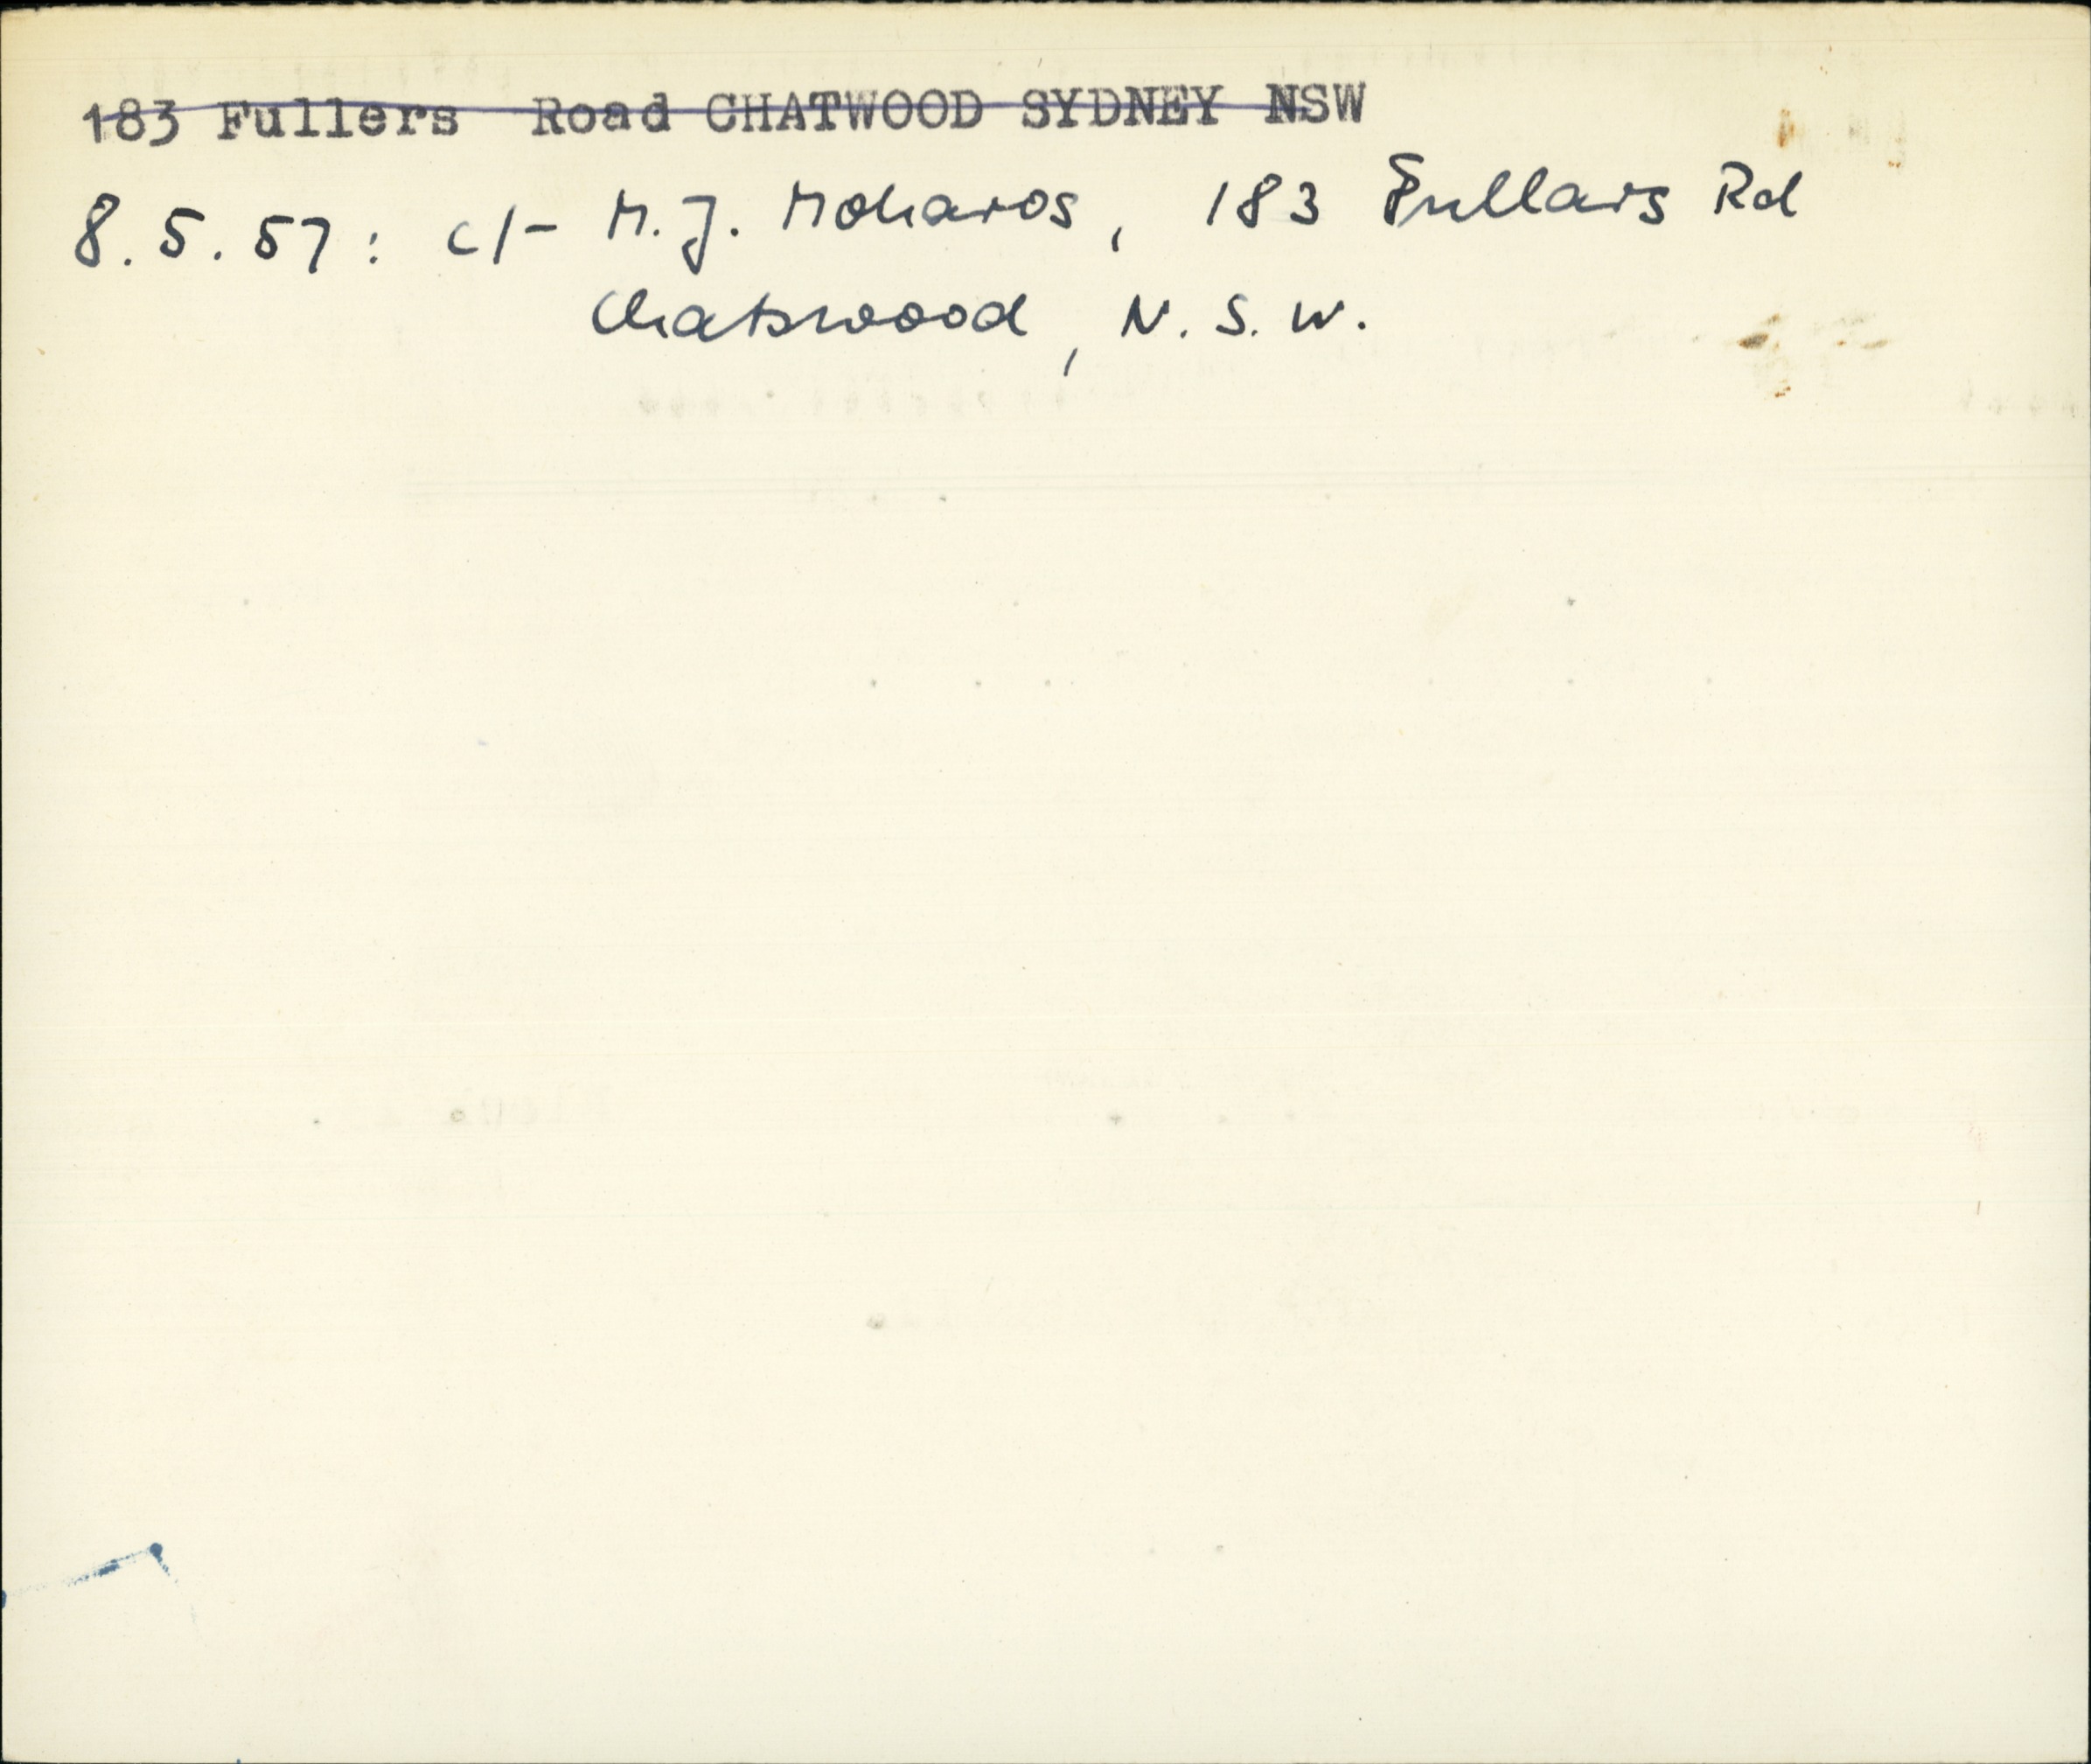 183 Fullers Road CHATWOOD SYDNEY NSW
8.5.57: c/- M.J. Moharos, 183 Fullars Rd
Chatswoood, N.S.W.